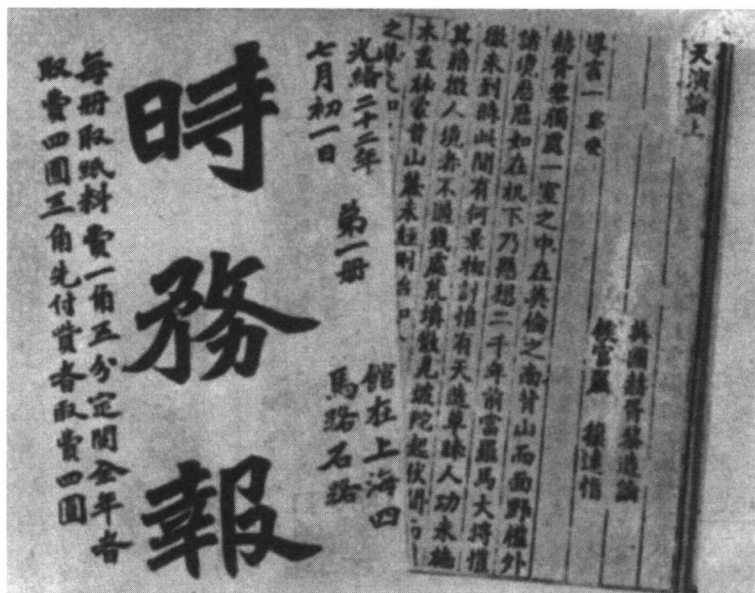 天演論上
英國赫胥黎造論
侯官嚴 復達恉
導言一 察變
赫胥黎獨處一室之中在英倫之南背山而面野檻外
諸境歷歷如在机下乃懸想二千年前當羅馬大將愷
徹未到時此間有何景物計惟有天造草昧人功未施
其藉徵人境者不過幾處荒墳散見坡陀起伏間
木叢林蒙茸山麓未經刪治如
之
館在上海四
馬路石路
光緒二十二年
七月初一日
第一册
時務報
每册取紙料費一角五分定閱全年者
取費四圓三角先付貲者取費四圓